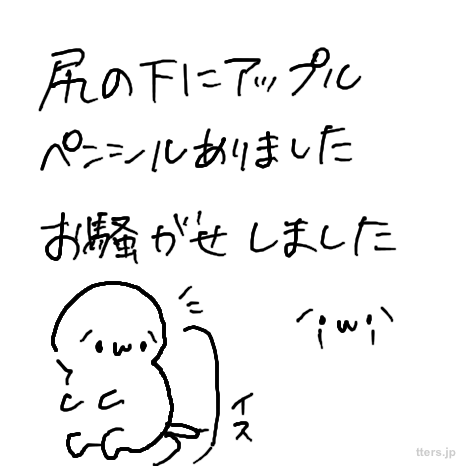 尻の下にアップル
ペンシルありました
お騒がせしました
イス
tters.jp